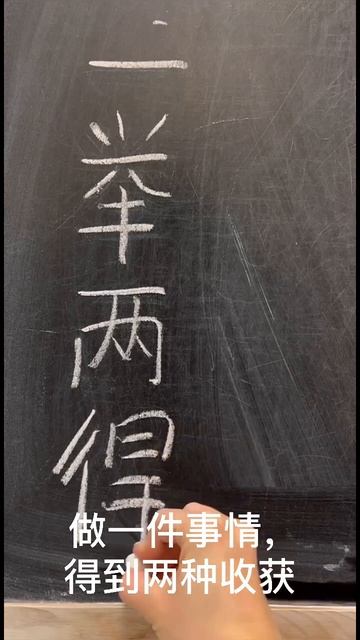 一举两得
做一件事情，
得到两种收获